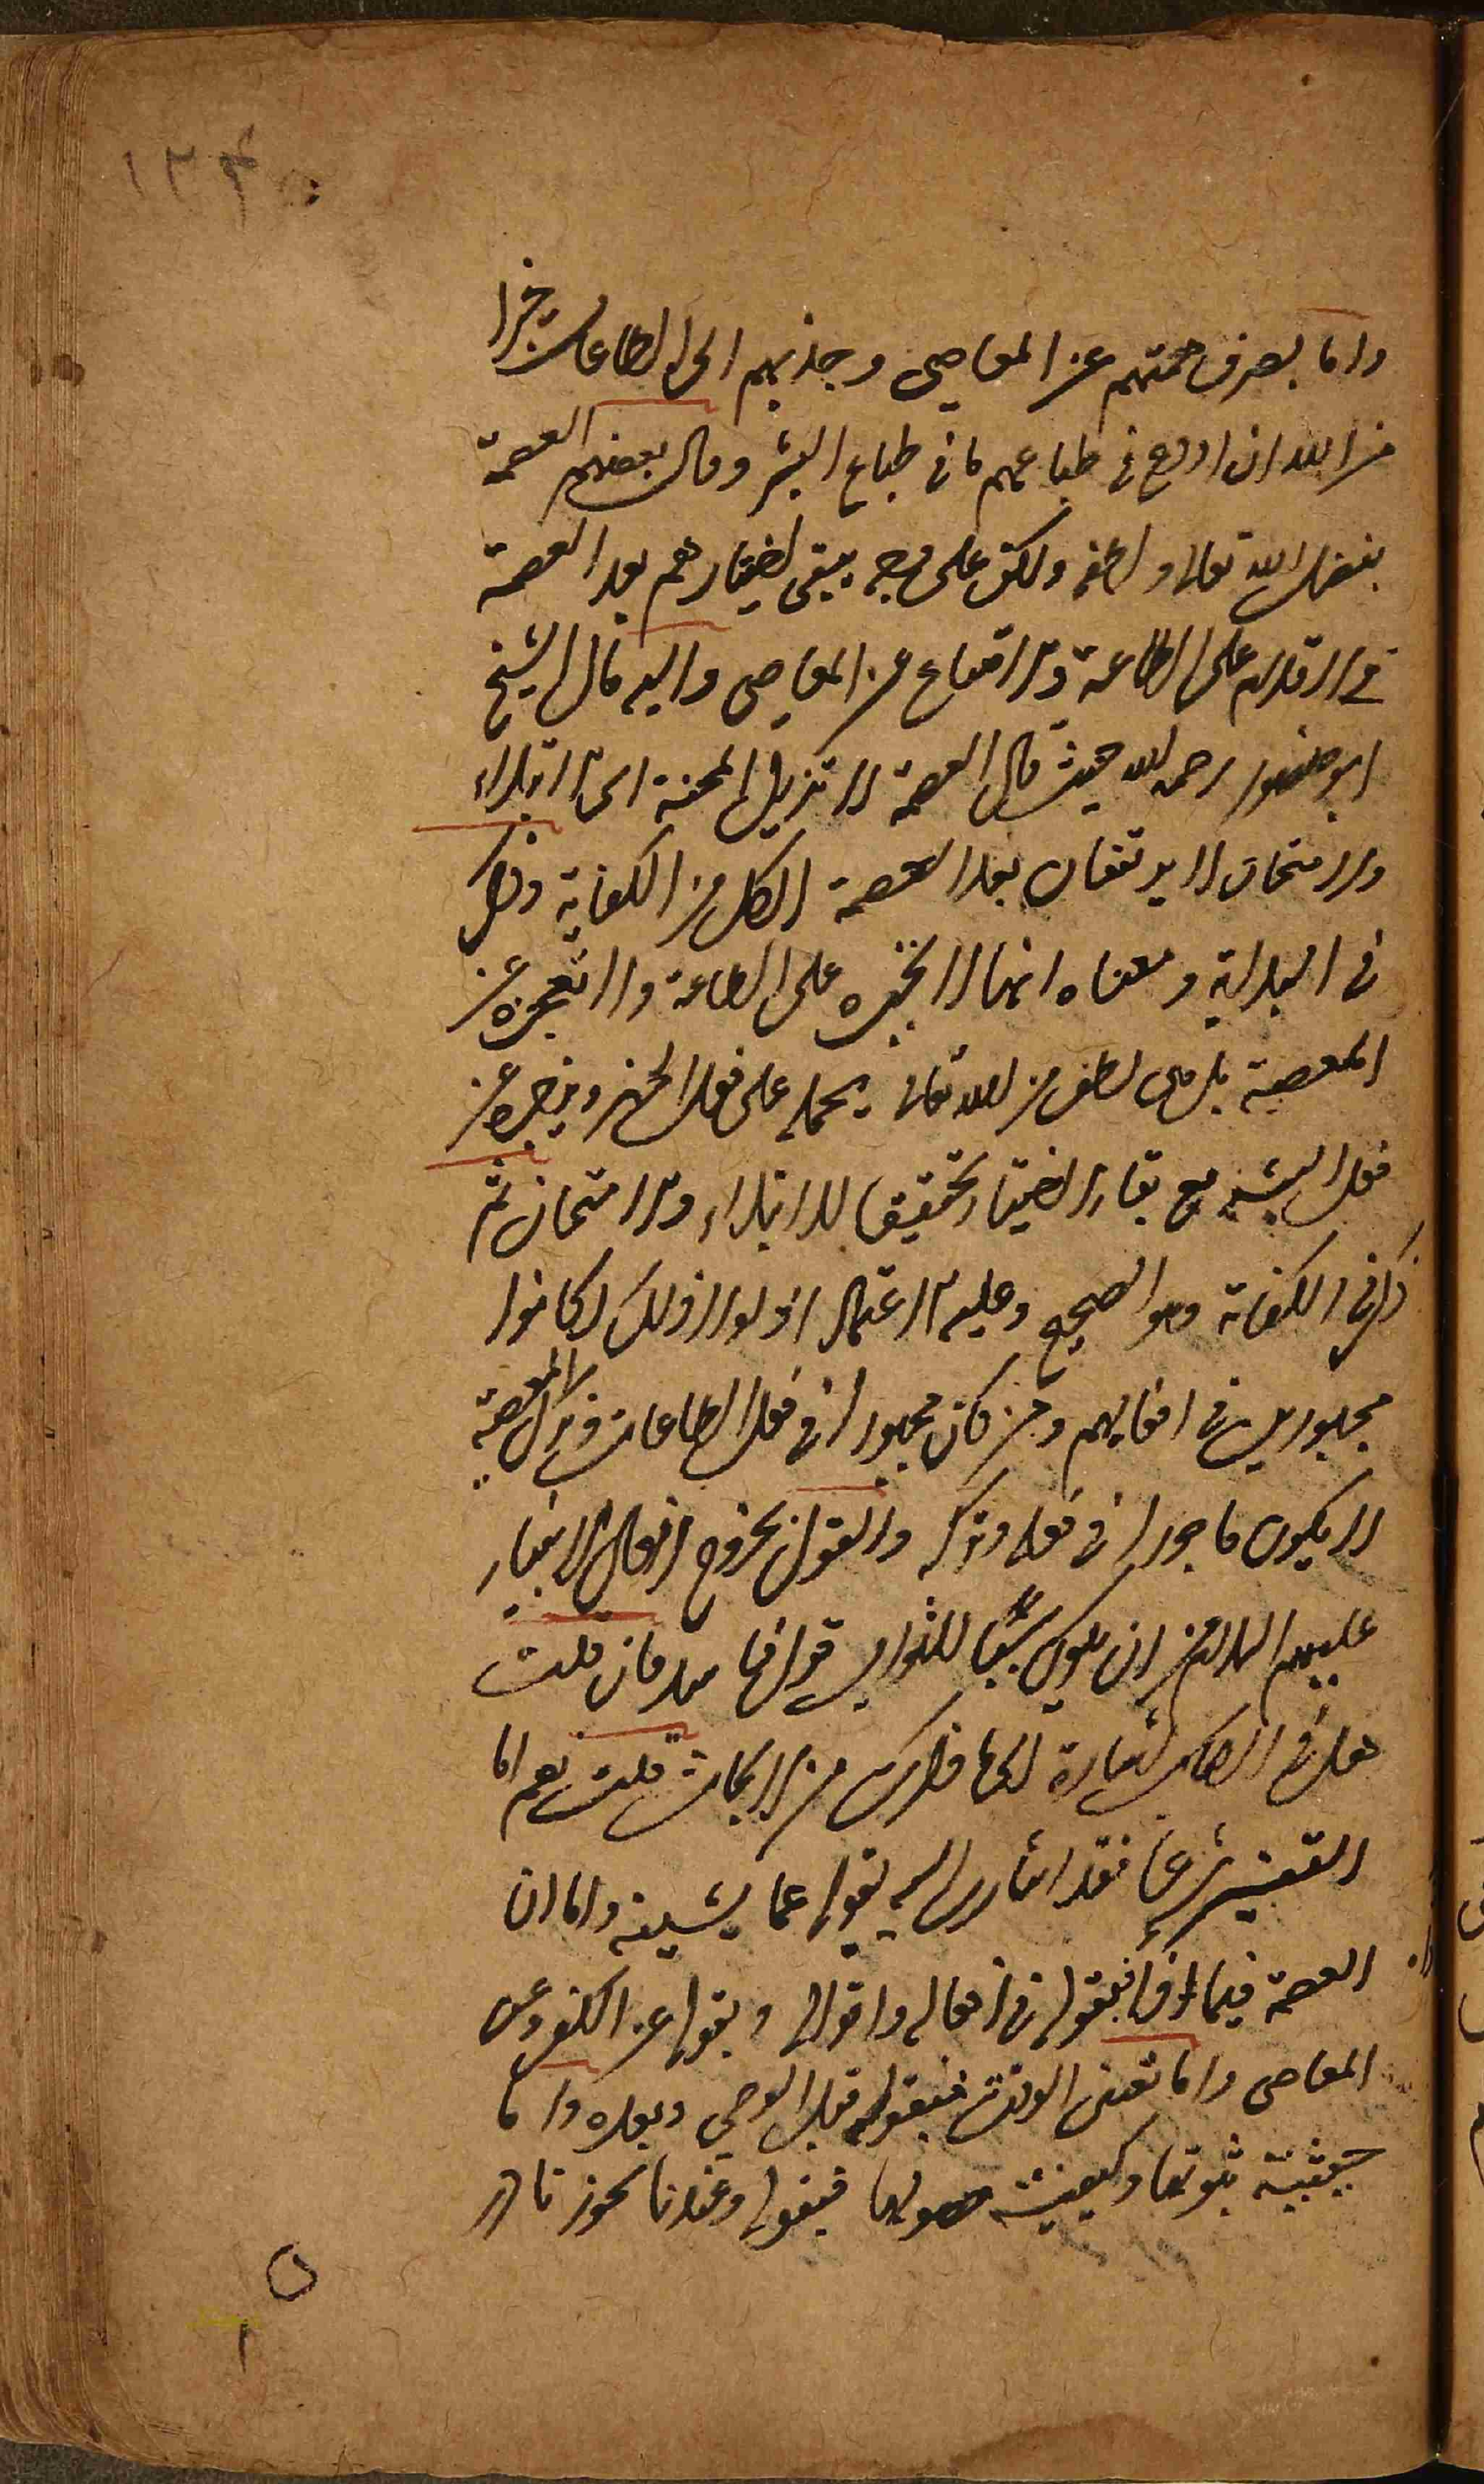 ١٢٤
واما بصرف همتهم عن المعاصى وجذبهم الى الطاعات جبرا
من الله ان اودع فى طباعهم ما فى طباع البشر وقال بعضهم العصمة
بفضل الله تعالى ولطفه ولكن على وجه يبقى اختيارهم بعد العصمة
فى الاقدام على الطاعة والامتناع عن المعاصى واليه مال الشيخ
ابو منصور رحمه الله حيث قال العصمة لا تزيل المحنة اى الابتلاء
والامتحان لا يرتفعان بعد العصمة الكل من الكفاية وذكر
فى البداية ومعناه انها لا تجبره على الطاعة ولا تعجزه عن
المعصية بل هى لطف من الله تعالى يحمله على فعل الخير ويزجره عن
فعل الشر مع بقاء الاختيار تحقيقا للابتلاء والامتحان ثم
ذكر فى الكفاية وهو الصحيح وعليه الاعتماد اذ لولا ذلك لكانوا
مجبورين فى افعالهم ومن كان مجبورا فى فعل الطاعات وترك المعصية
لا يكون ماجورا فى فعله وتركه والقول بخروج افعال الانبياء
عليهم السلام من ان يكون سببا للثواب قول فاسد فان قلت
هل فى الكتاب اشارة الى ما ذكرت من الابحاث قلت نعم اما
التفسير شرعا فقد اشار اليه بقوله عما يشينه واما ان
العصمة فيما اذا فبقوله فى افعاله واقواله وبقوله عن الكفر وعن
المعاصى واما تعين الوقت فبقوله قبل الوحى وبعده واما
حيثية ثبوتها وكيفية حصولها فبقوله وعندنا يجوز نادرا